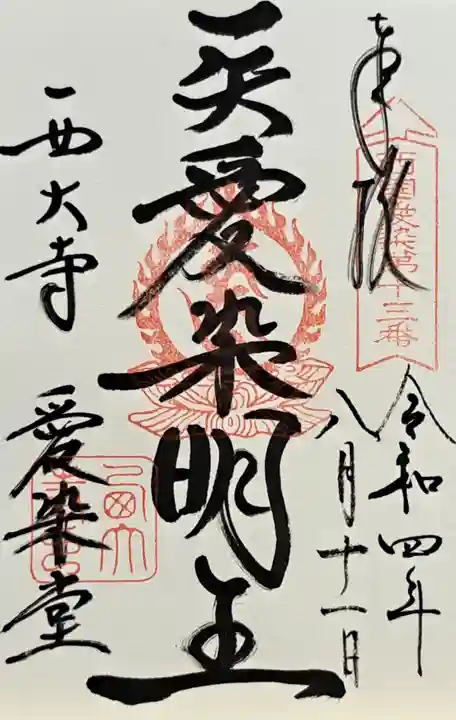 奉拝
西国愛染第十三番
令和四年
八月十一日
愛染明王
西大寺
愛染堂